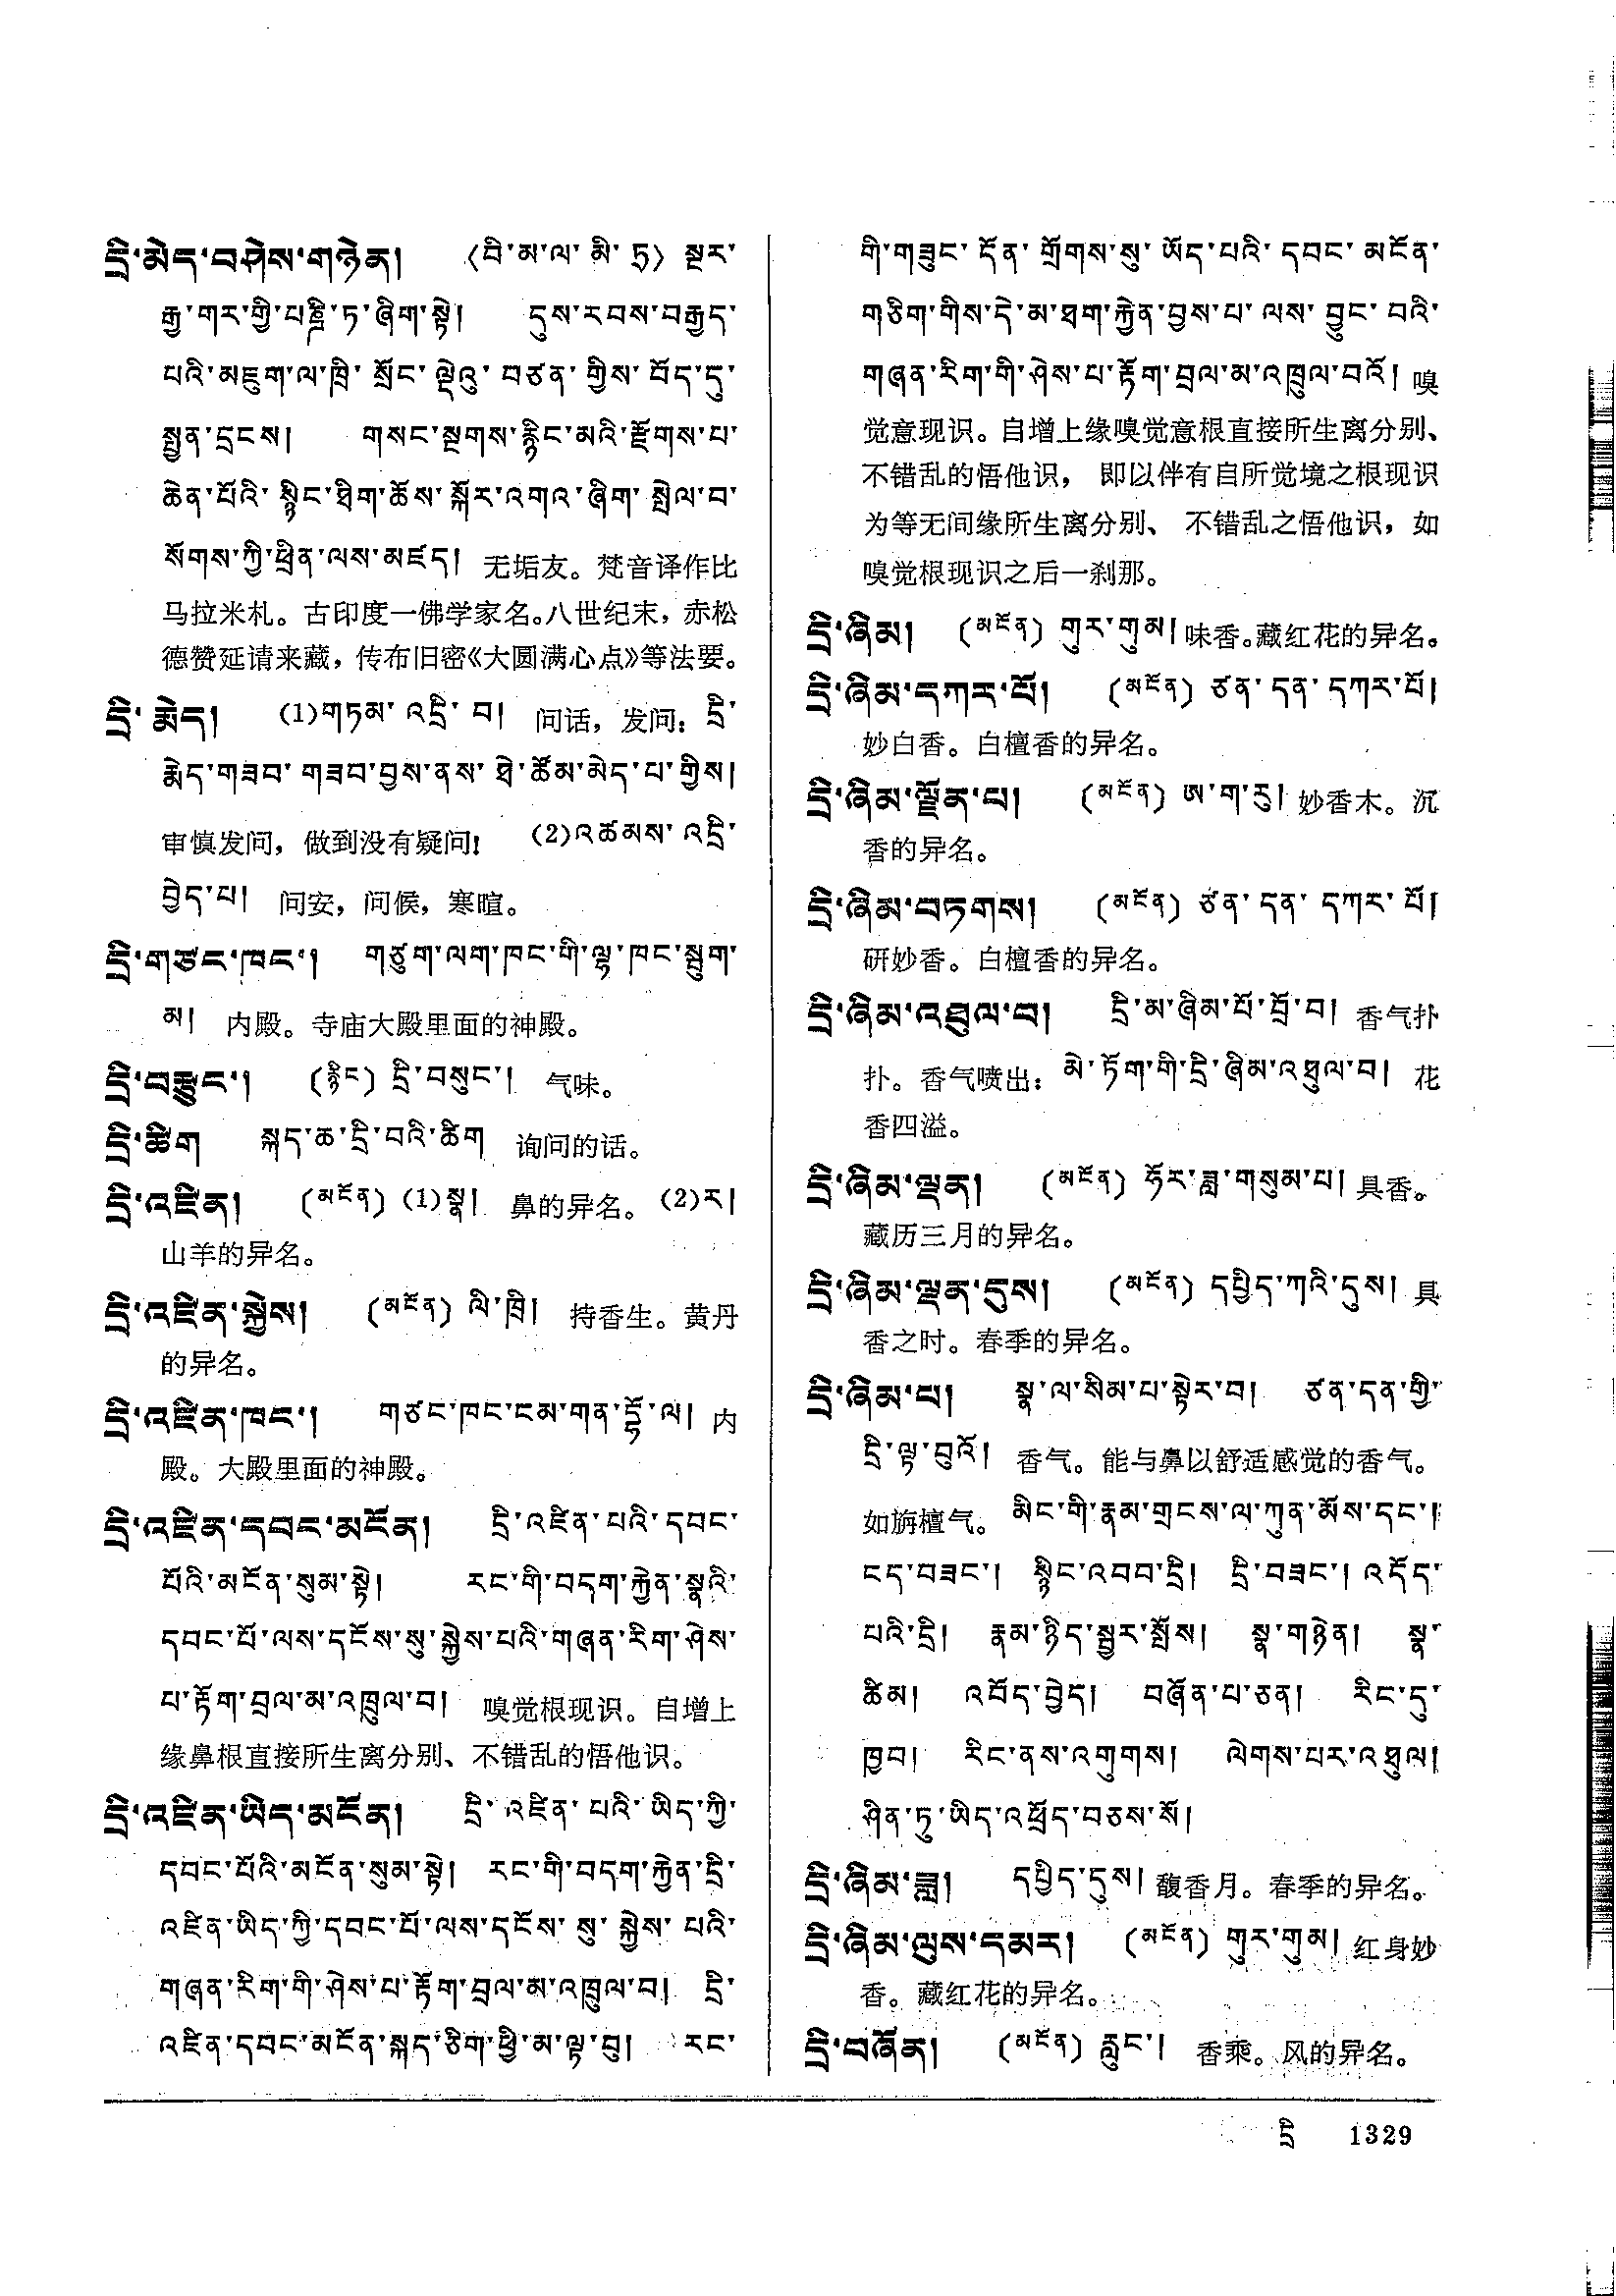 དྲི་མེད་བཤེས་གཉེན། (བི་མ་ལ་མི་ཏྲ) སྔར་
རྒྱ་གར་གྱི་པཎྜི་ཏ་ཞིག་སྟེ། དུས་རབས་བརྒྱད་
པའི་མཇུག་ལ་ཁྲི་སྲོང་ལྡེའུ་བཙན་གྱིས་བོད་དུ་
སྤྱན་དྲངས། གསང་སྔགས་རྙིང་མའི་རྫོགས་པ་
ཆེན་པོའི་སྙིང་ཐིག་ཆོས་སྐོར་འགའ་ཞིག་སྤེལ་བ་
སོགས་ཀྱི་ཕྲིན་ལས་མཛད། 无垢友。梵音译作比
马拉米札。古印度一佛学家名。八世纪末，赤松
德赞延请来藏，传布旧密《大圆满心点》等法要。
དྲི་རྨེད། (1)གཏམ་འདྲི་བ། 问话，发问：དྲི་
རྨེད་གཟབ་གཟབ་བྱས་ནས་ཐེ་ཚོམ་མེད་པ་གྱིས།
审慎发问，做到没有疑问！ (2)འཚམས་འདྲི་
བྱེད་པ། 问安，问候，寒暄。
དྲི་གཙང་ཁང་། གཙུག་ལག་ཁང་གི་ལྷ་ཁང་སྦུག་
མ། 内殿。寺庙大殿里面的神殿。
དྲི་བསྩུང་། (རྙིང) དྲི་བསུང་། 气味。
དྲི་ཚིག སྐད་ཆ་དྲི་བའི་ཚིག 询问的话。
དྲི་འཛིན། (མངོན) (1)སྣ། 鼻的异名。(2)ར།
山羊的异名。
དྲི་འཛིན་སྐྱེས། (མངོན) ལི་ཁྲི། 持香生。黄丹
的异名。
དྲི་འཛིན་ཁང་། གཙང་ཁང་ངམ་གན་དྷོ་ལ། 内
殿。大殿里面的神殿。
དྲི་འཛིན་དབང་མངོན། དྲི་འཛིན་པའི་དབང་
པོའི་མངོན་སུམ་སྟེ། རང་གི་བདག་རྐྱེན་སྣའི་
དབང་པོ་ལས་དངོས་སུ་སྐྱེས་པའི་གཞན་རིག་ཤེས་
པ་རྟོག་བྲལ་མ་འཁྲུལ་བ། 嗅觉根现识。自增上
缘鼻根直接所生离分别、不错乱的悟他识。
དྲི་འཛིན་ཡིད་མངོན། དྲི་འཛིན་པའི་ཡིད་ཀྱི་
དབང་པོའི་མངོན་སུམ་སྟེ། རང་གི་བདག་རྐྱེན་དྲི་
འཛིན་ཡིད་ཀྱི་དབང་པོ་ལས་དངོས་སུ་སྐྱེས་པའི་
གཞན་རིག་གི་ཤེས་པ་རྟོག་བྲལ་མ་འཁྲུལ་བ། དྲི་
འཛིན་དབང་མངོན་སྐད་ཅིག་ཕྱི་མ་ལྟ་བུ། རང་
གི་གཟུང་དོན་གྲོགས་སུ་ཡོད་པའི་དབང་མངོན་
གཅིག་གིས་དེ་མ་ཐག་རྐྱེན་བྱས་པ་ལས་བྱུང་བའི་
གཞན་རིག་གི་ཤེས་པ་རྟོག་བྲལ་མ་འཁྲུལ་བའོ། 嗅
觉意现识。自增上缘嗅觉意根直接所生离分别、
不错乱的悟他识，即以伴有自所觉境之根现识
为等无间缘所生离分别、不错乱之悟他识，如
嗅觉根现识之后一刹那。
དྲི་ཞིམ། (མངོན) གུར་གུམ། 味香。藏红花的异名。
དྲི་ཞིམ་དཀར་པོ། (མངོན) ཙན་དན་དཀར་པོ།
妙白香。白檀香的异名。
དྲི་ཞིམ་ལྗོན་པ། (མངོན) ཨ་ག་རུ། 妙香木。沉
香的异名。
དྲི་ཞིམ་བཏགས། (མངོན) ཙན་དན་དཀར་པོ།
研妙香。白檀香的异名。
དྲི་ཞིམ་འཐུལ་བ། དྲི་མ་ཞིམ་པོ་བྲོ་བ། 香气扑
扑。香气喷出：མེ་ཏོག་གི་དྲི་ཞིམ་འཐུལ་བ། 花
香四溢。
དྲི་ཞིམ་ལྡན། (མངོན) ཧོར་ཟླ་གསུམ་པ། 具香。
藏历三月的异名。
དྲི་ཞིམ་ལྡན་དུས། (མངོན) དཔྱིད་ཀའི་དུས། 具
香之时。春季的异名。
དྲི་ཞིམ་པ། སྣ་ལ་སིམ་པ་སྟེར་བ། ཙན་དན་གྱི་
དྲི་ལྟ་བུའོ། 香气。能与鼻以舒适感觉的香气。
如旃檀气。མིང་གི་རྣམ་གྲངས་ལ་ཀུན་མོས་དང་།
ངད་བཟང་། སྙིང་འབབ་དྲི། དྲི་བཟང་། འདོད་
པའི་དྲི། རྣམ་ཉིད་སྦྱར་སྤོས། སྣ་གཉེན། སྣ་
ཚིམ། འབོད་བྱེད། བཞོན་པ་ཅན། རིང་དུ་
ཁྱབ། རིང་ནས་འགུགས། ལེགས་པར་འཐུལ།
ཤིན་ཏུ་ཡིད་འཕྲོད་བཅས་སོ།
དྲི་ཞིམ་ཟླ། དཔྱིད་དུས། 馥香月。春季的异名。
དྲི་ཞིམ་ལུས་དམར། (མངོན) གུར་གུམ། 红身妙
香。藏红花的异名。
དྲི་བཞོན། (མངོན) རླུང་། 香乘。风的异名。
དྲི 1329